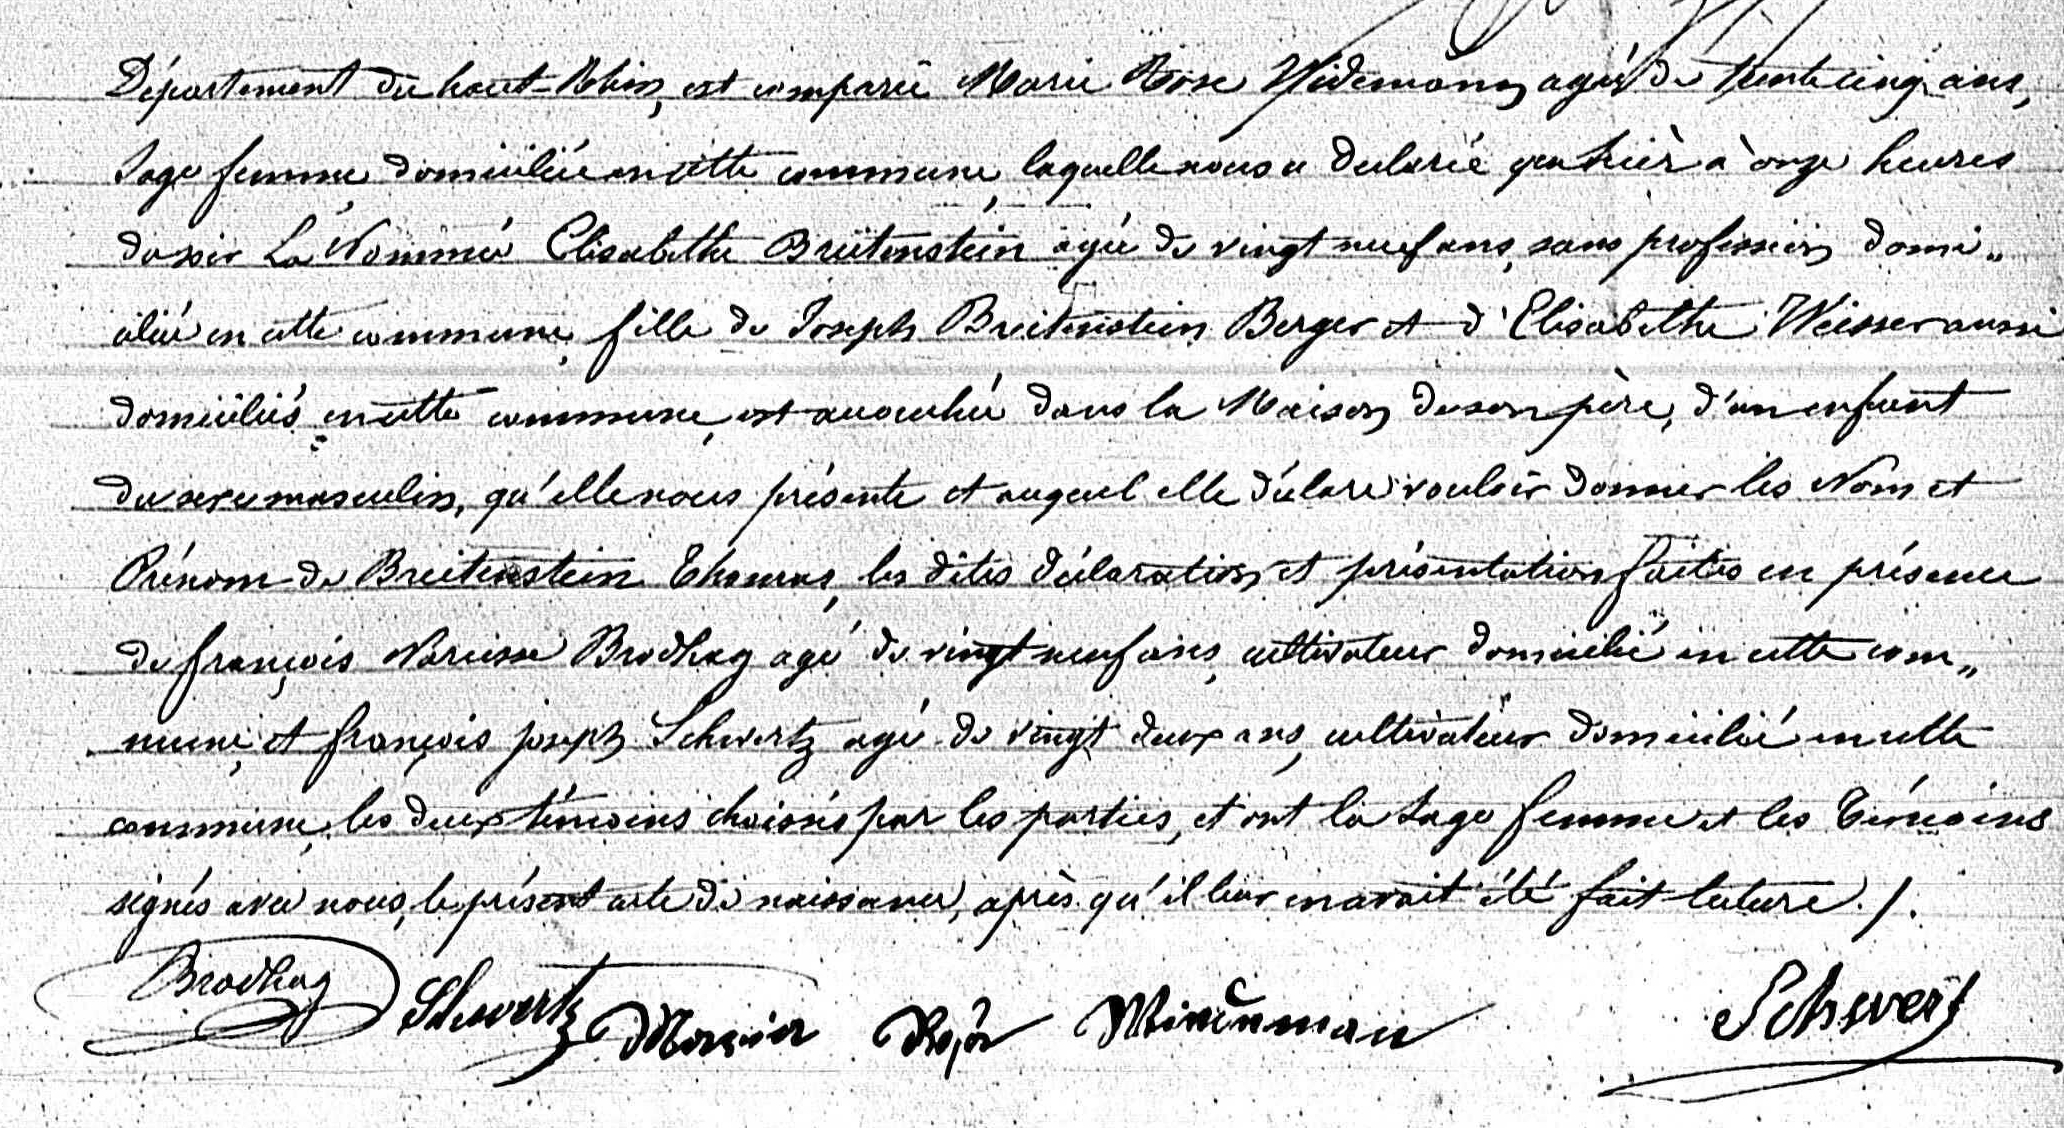 Département du haut-Rhin, est comparüe Marie Rose Widemann agée de trente cinq ans,
Sage femme, domiciliée en cette commune, laquelle nous a declarée que hièr à onze heures
du soir La Nommée Elisabethe Breitenstein agée de vingt neuf ans, sans profession domi„
ciliée en cette commune, fille de Joseph Breitenstein Berger et d'Elisabethe Weisser aussi
domiciliés en cette commune, est accouchée dans la Maison de son père, d'un enfant
du sexe masculin, qu'elle nous présente et auquel elle déclare vouloir donner les Nom et
Prénom de Breitenstein Thomas, les dites déclaration et présentation faites en présence
de françois Narcisse Brodhag agé de vingt neuf ans, cultivateur domicilié en cette com„
mune, et françois joseph Schwertz agé de vingt deux ans, cultivateur domicilié en cette
commune, les deux témoins choisis par les parties, et ont la Sage femme et les Témoins
signés avec nous, le présent acte de naissance, après qu'il leur en avait été fait lecture ./.
Brodhag Schwertz Schwertz